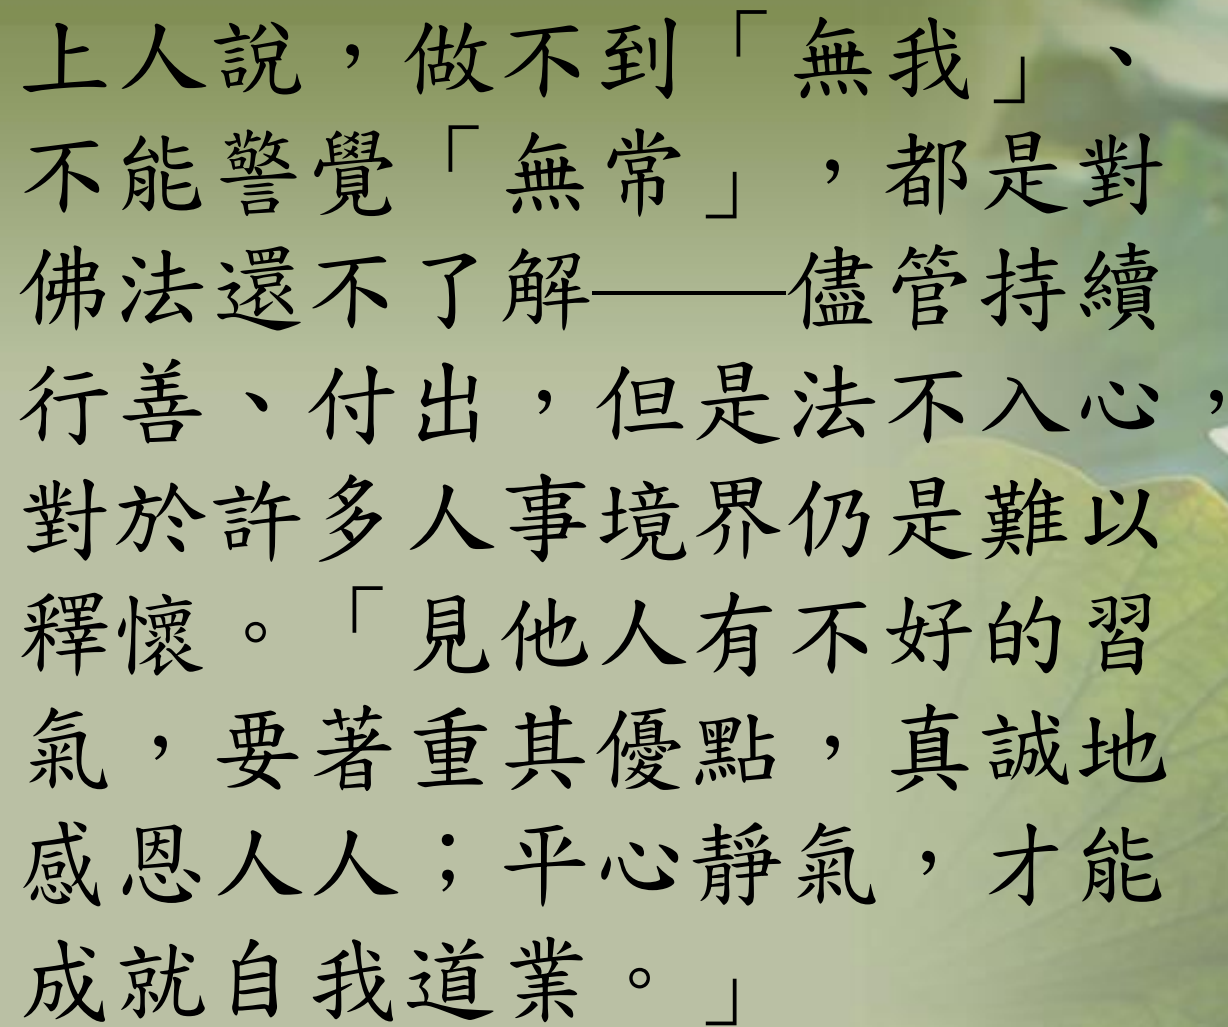 上人說，做不到「無我」、
不能警覺「無常」，都是對
佛法還不了解──儘管持續
行善、付出，但是法不入心，
對於許多人事境界仍是難以
釋懷。「見他人有不好的習
氣，要著重其優點，真誠地
感恩人人；平心靜氣，才能
成就自我道業。」